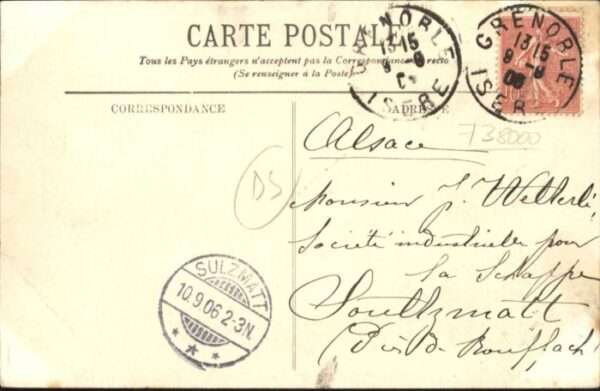 CARTE POSTALE
Tous les Pays étrangers n'acceptent pas la Correspondance au recto
(Se renseigner à la Poste)
GRENOBLE
13 15
9 - 9
ISERE
GRENOBLE
13 15
9 - 9
06
ISERE
CORRESPONDANCE
ADRESSE
738000
Alsace
DS
Monsieur J.
Société industrielle pour
la Schappe
Soultzmatt
Près de Rouffach
SULZMATT
10.9.06 2-3N.